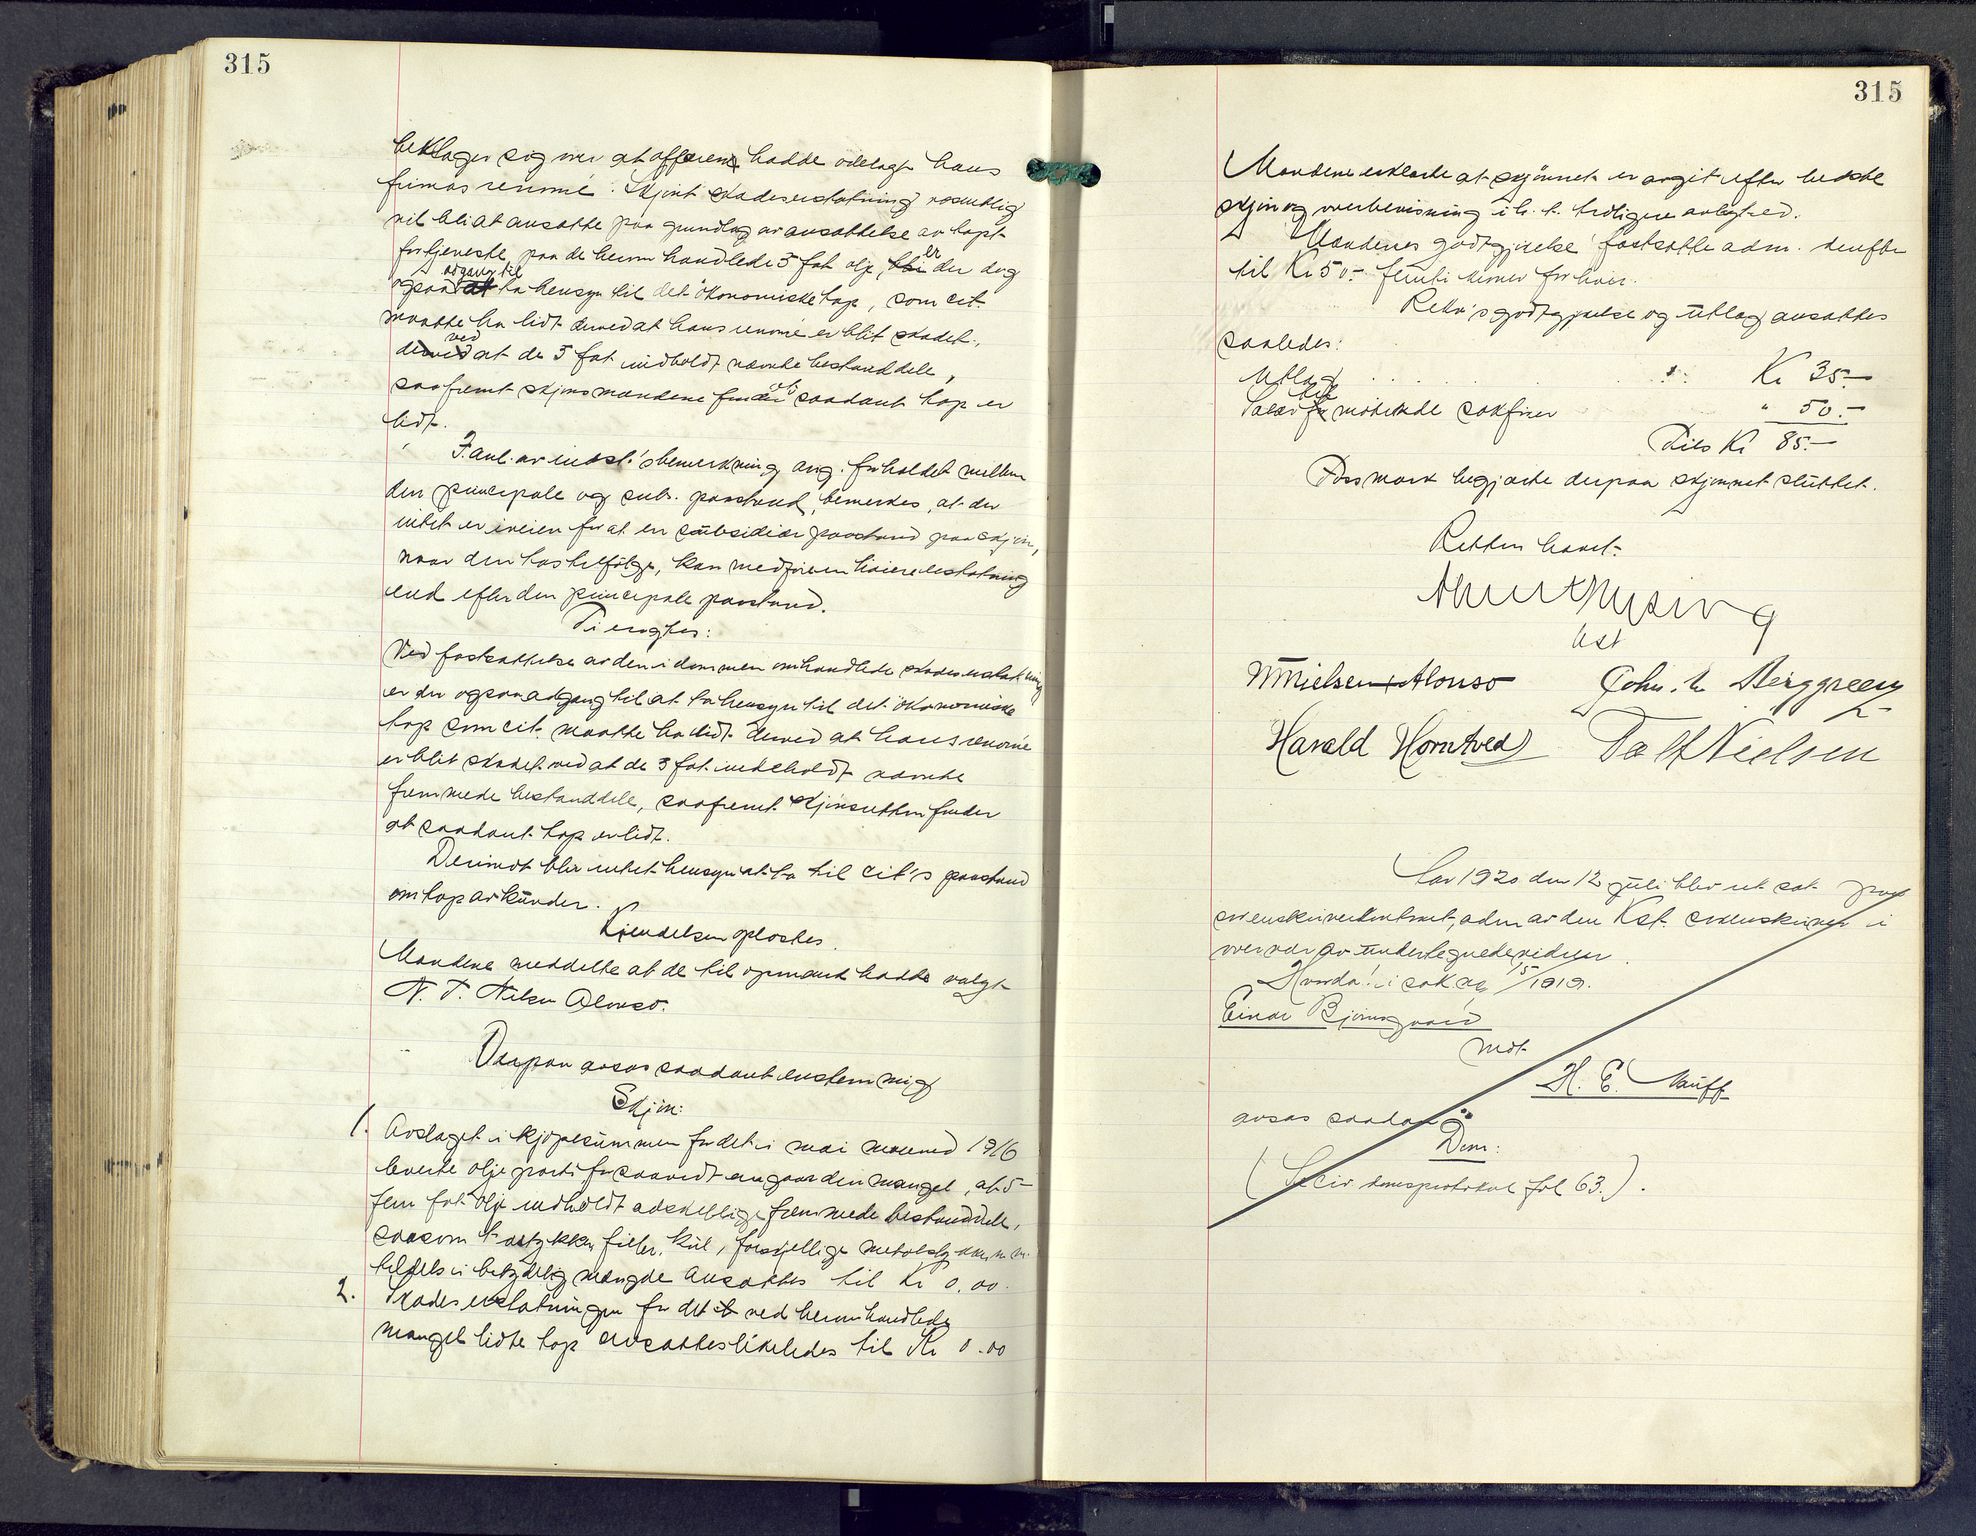 315
beklager sig over at offerenten hadde ødelagt hans
firmas renomé. Skjønt skadeserstatning væsentlig
vil bli at ansætte paa grundlag av ansættelse av tapt
fortjeneste paa de herom handlede 5 fat olje, blir er der dog
ogsaa at adgang til ta hensyn til det økonomiske tap, som cit.
maatte ha lidt derved at hans renomé er blit skadet,
derved ved at de 5 fat indholdt nævnte bestanddele,
saafremt skjønsmændene finder at saadant tap er
lidt.
I anl. av indst.'s bemerkning ang. forholdet mellem
den principale og subs. paastand, bemerkes, at der
intet er iveien for at en subsidiær paastand paa skjøn,
naar den tas tilfølge, kan medføre en høiere erstatning
end efter den principale paastand.
Ti eragtes:
Ved fastsættelse av den i dommen omhandlede skadeserstatning
er der ogsaa adgang til at ta hensyn til det økonomiske
tap som cit. maatte ha lidt derved at hans renomé
er blit skadet ved at de 5 fat indeholdt nævnte
fremmede bestanddele, saafremt skjønsretten finder
at saadant tap er lidt.
Derimot blir intet hensyn at ta til cit's paastand
om tap av kunder.
Kjendelsen oplæstes.
Mændene meddelte at de til opmand hadde valgt
N. T. Nielsen Alonso.
Derpaa avsas saadant enstemmig
Skjøn:
1. Avslaget i kjøpesummen for det i mai maaned 1916
leverte olje parti forsaavidt angaar den mangel, at 5-
fem fat olje indholdt adskillige fremmede bestanddele,
saasom træstykker, filler, kul, forskjellige metalstykker m.m.
tildels i betydelig mængde ansættes til Kr 0,00.
2. Skadeserstatningen for det ved herom handlede
mangel lidte tap ansættes likeledes til Kr 0.00
315
Mændene erklærte at skjønnet er avgit efter bedste
skjøn og overbevisning i h. t. tidligere avlagt ed.
Mændenes godtgjørelse fastsatte adm. derefter
til Kr 50.- femti kroner for hver.
Rekv's godtgjørelse og utlæg ansættes
saaledes:
Utlæg . . . . Kr 35.-
Salær for til møtende sakfører " 50.-
Tils Kr 85.-
Passmark begjærte derpaa skjønnet sluttet.
Retten hævet.
cst
N Nielsen Alonso John. L. Berggreen
Harald Horntvedt Ralf Nielsen
Aar 1920 den 12 juli blev ret sat paa
sorenskriverkontoret, adm. av den kst. sorenskriver i
overvær av undertegnede vidner.
Hvorda: i sak ag 15/1919.
Einar Bjerngaard
mot
H. E. Nauff
avsas saadan
Dom:
(Se civ. domsprotokol fol 63.).